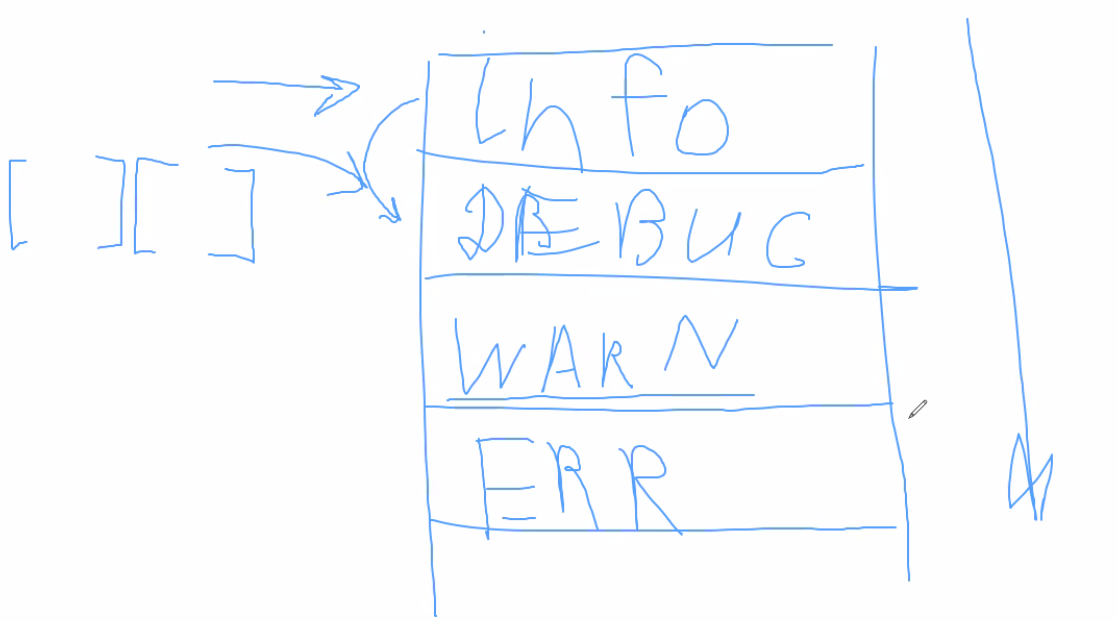 [ ] [ ]
Info
DEBUG
WARN
ERR